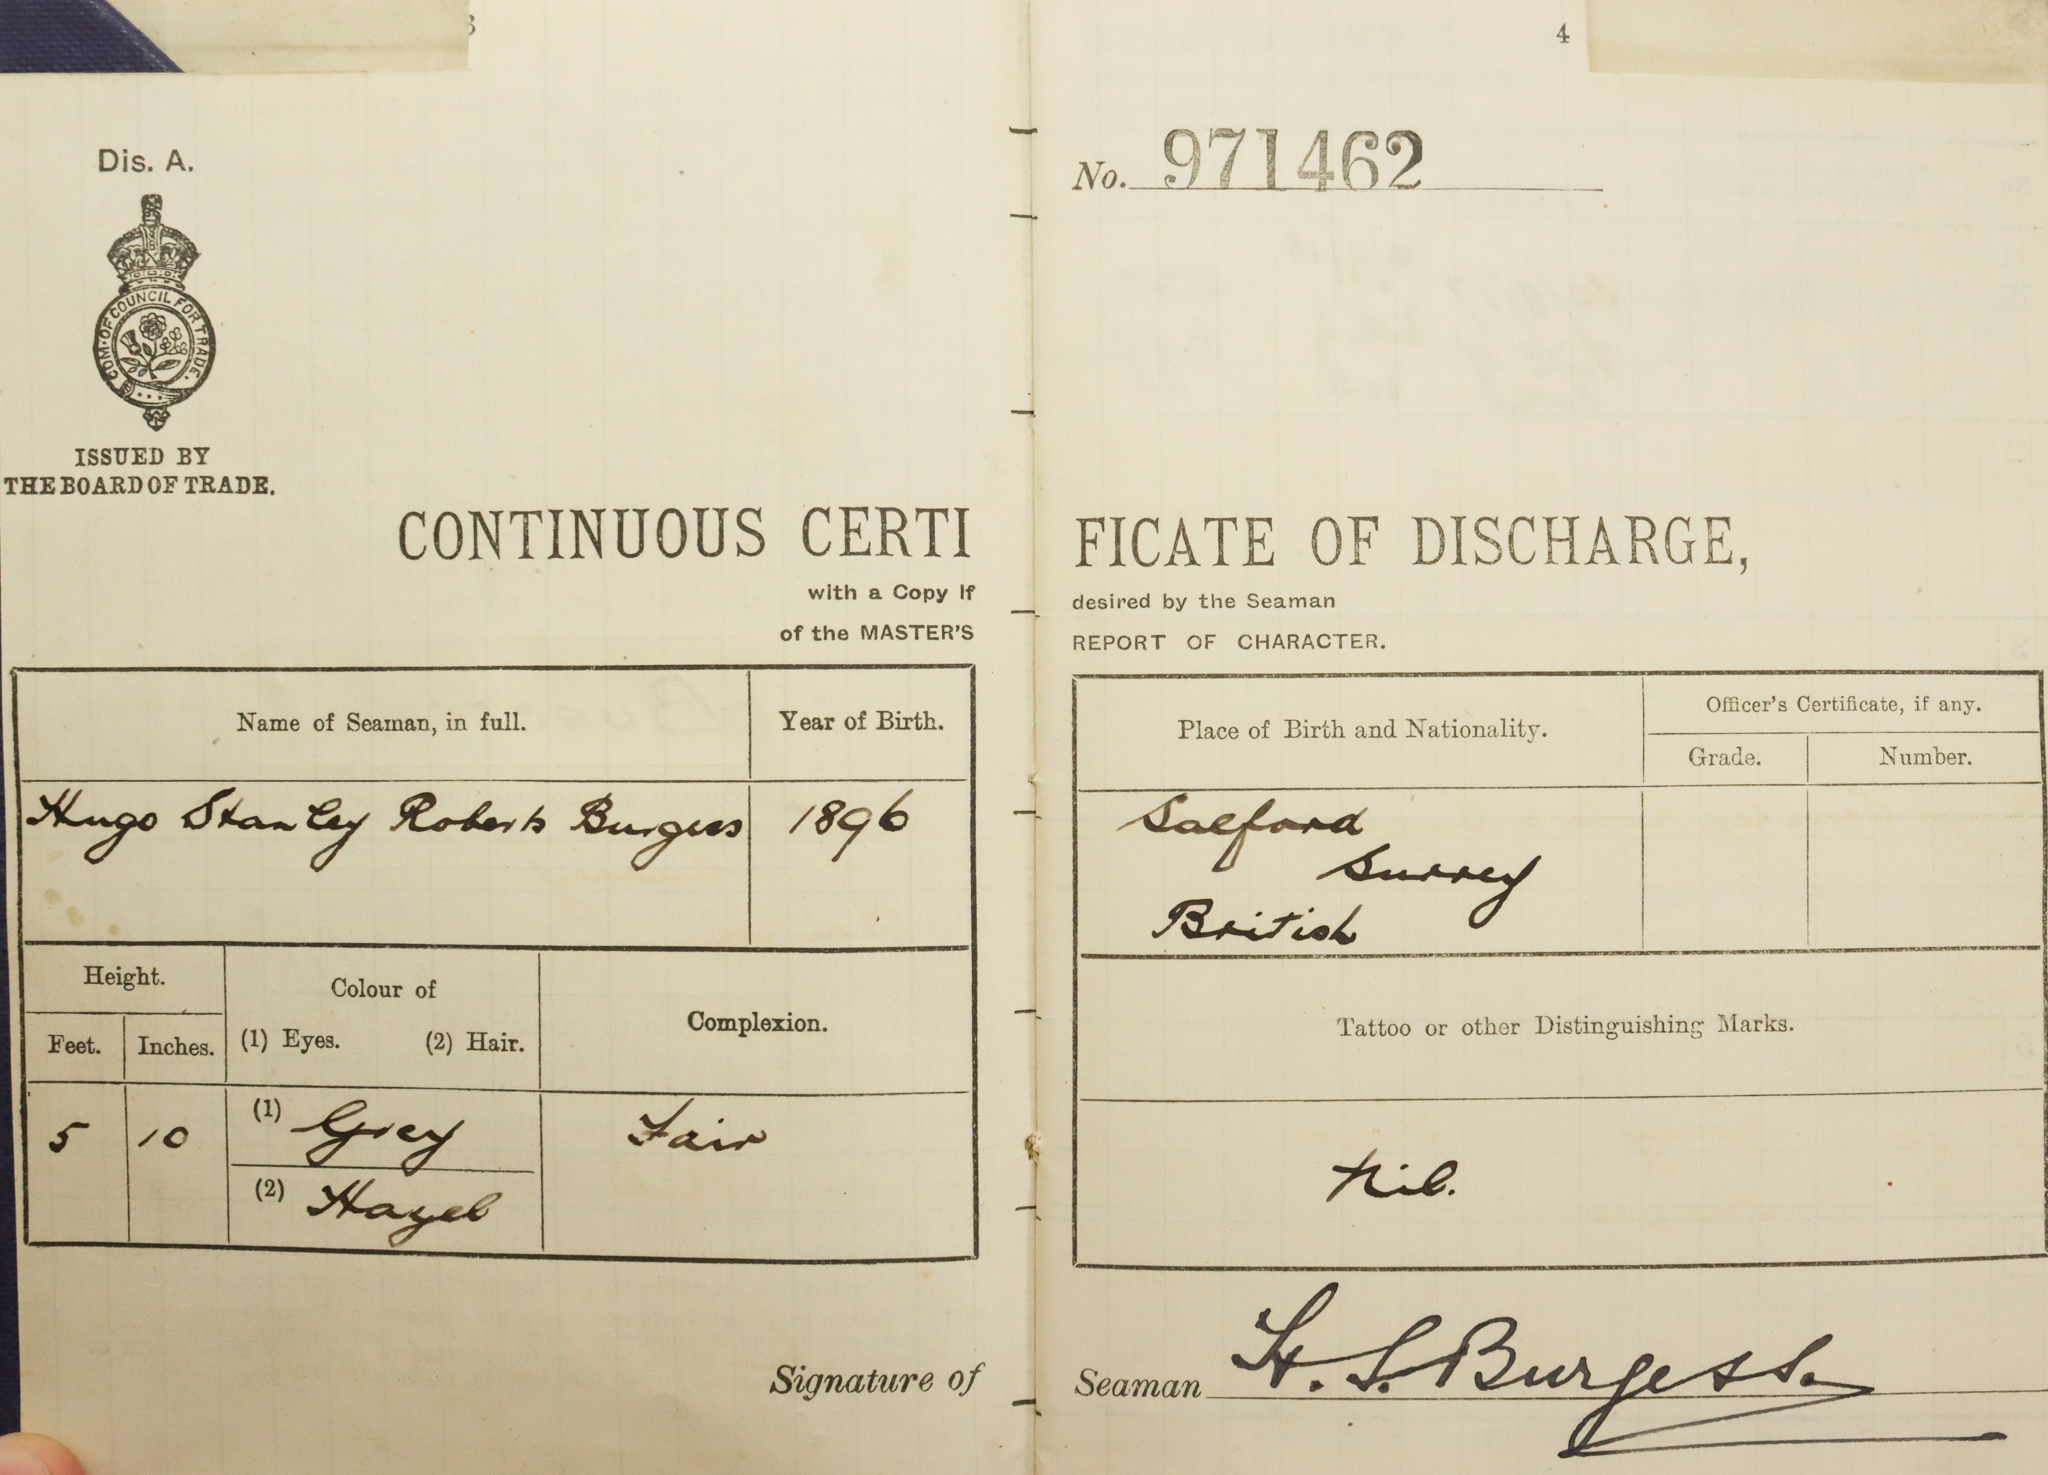 3
Dis. A.
COM. OF COUNCIL FOR TRADE.
ISSUED BY
THE BOARD OF TRADE.
CONTINUOUS CERTI
with a Copy if
of the MASTER'S
Name of Seaman, in full.
Year of Birth.
Hugo Stanley Roberts Burgess
1896
Height.
Feet.
Inches.
Colour of
(1) Eyes.
(2) Hair.
Complexion.
5
10
(1) Grey
(2) Hazel
Fair
Signature of
4
No. 971462
FICATE OF DISCHARGE,
desired by the Seaman
REPORT OF CHARACTER.
Place of Birth and Nationality.
Officer's Certificate, if any.
Grade.
Number.
Salford
Surrey
British
Tattoo or other Distinguishing Marks.
Nil.
Seaman H. S. Burgess.